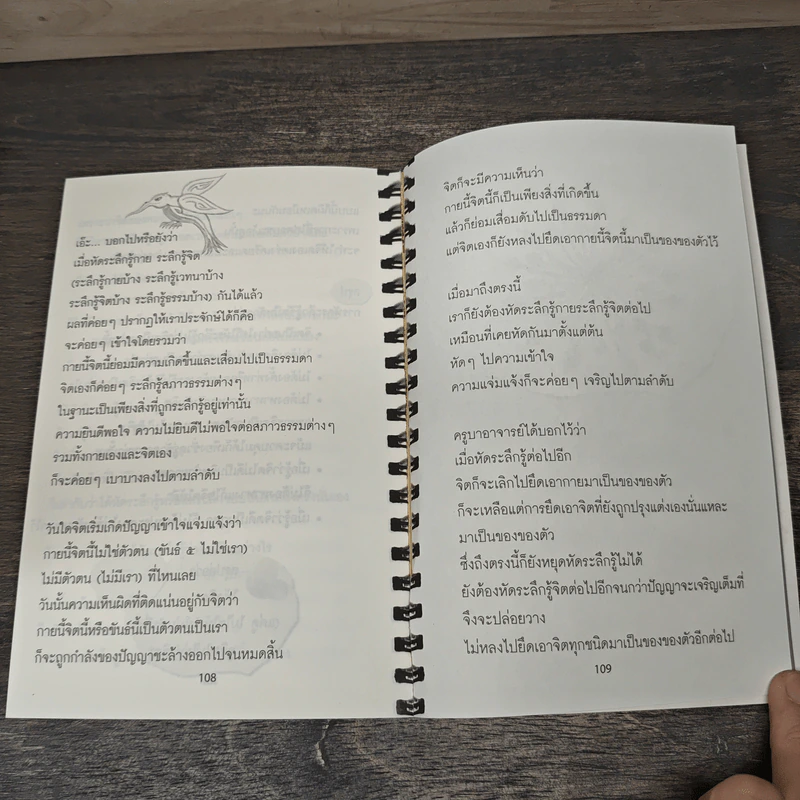 เอ๊ะ... บอกไปหรือยังว่า
เมื่อหัดระลึกรู้กาย ระลึกรู้จิต
(ระลึกรู้กายบ้าง ระลึกรู้เวทนาบ้าง
ระลึกรู้จิตบ้าง ระลึกรู้ธรรมบ้าง) กันได้แล้ว
ผลที่ค่อยๆ ปรากฏให้เราประจักษ์ได้ก็คือ
จะค่อยๆ เข้าใจโดยรวมว่า
กายนี้จิตนี้ย่อมมีความเกิดขึ้นและเสื่อมไปเป็นธรรมดา
จิตเองก็ค่อยๆ ระลึกรู้สภาวธรรมต่างๆ
ในฐานะเป็นเพียงสิ่งที่ถูกระลึกรู้อยู่เท่านั้น
ความยินดีพอใจ ความไม่ยินดีไม่พอใจต่อสภาวธรรมต่างๆ
รวมทั้งกายเองและจิตเอง
ก็จะค่อยๆ เบาบางลงไปตามลำดับ
วันใดจิตเริ่มเกิดปัญญาเข้าใจแจ่มแจ้งว่า
กายนี้จิตนี้ไม่ใช่ตัวตน (ขันธ์ ๕ ไม่ใช่เรา)
ไม่มีตัวตน (ไม่มีเรา) ที่ไหนเลย
วันนั้นความเห็นผิดที่ติดแน่นอยู่กับจิตว่า
กายนี้จิตนี้หรือขันธ์นี้เป็นตัวตนเป็นเรา
ก็จะถูกกำลังของปัญญาชะล้างออกไปจนหมดสิ้น
108
จิตก็จะมีความเห็นว่า
กายนี้จิตนี้ก็เป็นเพียงสิ่งที่เกิดขึ้น
แล้วก็ย่อมเสื่อมดับไปเป็นธรรมดา
แต่จิตเองก็ยังหลงไปยึดเอากายนี้จิตนี้มาเป็นของของตัวไว้
เมื่อมาถึงตรงนี้
เราก็ยังต้องหัดระลึกรู้กายระลึกรู้จิตต่อไป
เหมือนที่เคยหัดกันมาตั้งแต่ต้น
หัดๆ ไปความเข้าใจ
ความแจ่มแจ้งก็จะค่อยๆ เจริญไปตามลำดับ
ครูบาอาจารย์ได้บอกไว้ว่า
เมื่อหัดระลึกรู้ต่อไปอีก
จิตก็จะเลิกไปยึดเอากายมาเป็นของของตัว
ก็จะเหลือแต่การยึดเอาจิตที่ยังถูกปรุงแต่งเองนั่นแหละ
มาเป็นของของตัว
ซึ่งถึงตรงนี้ก็ยังหยุดหัดระลึกรู้ไม่ได้
ยังต้องหัดระลึกรู้จิตต่อไปอีกจนกว่าปัญญาจะเจริญเต็มที่
จึงจะปล่อยวาง
ไม่หลงไปยึดเอาจิตทุกชนิดมาเป็นของของตัวอีกต่อไป
109